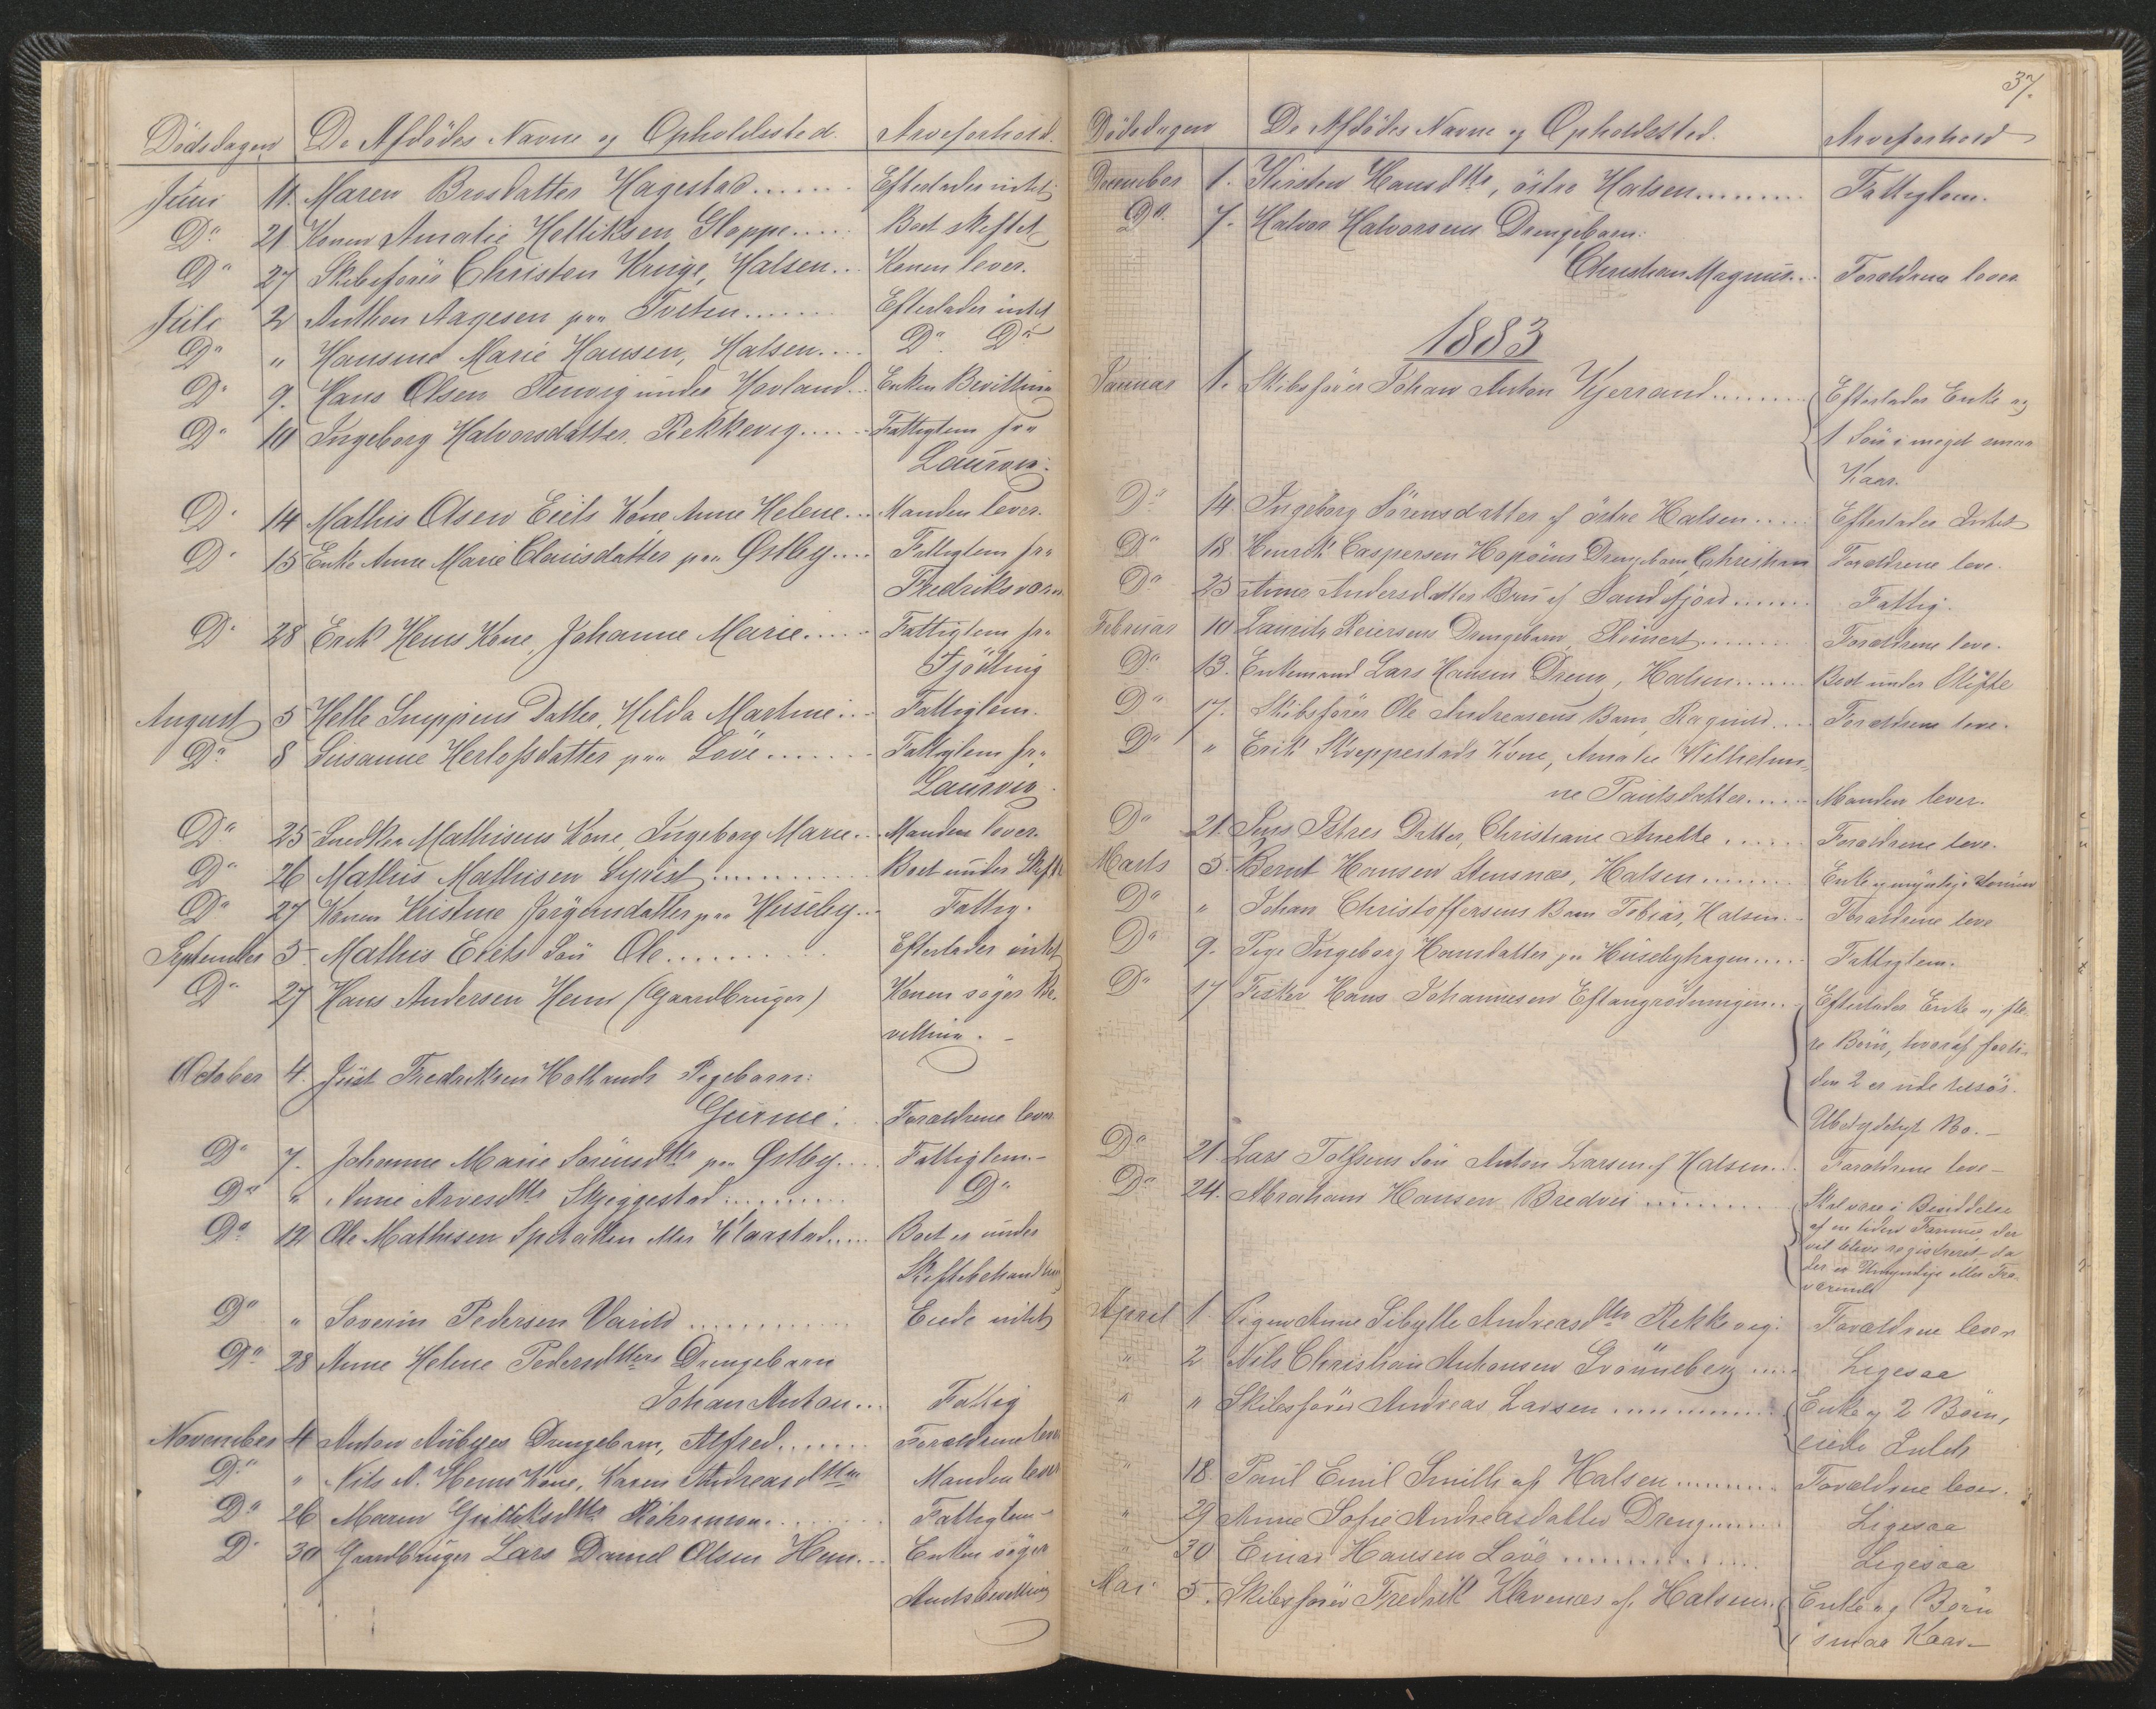 Dødsdagen De Afdødes Navne og Opholdssted. Arveforhold.
Juni 11. Maren Brosdatter Hagestad....... Efterlader intet
Do 21 Konen Amalie Kloppe..... Boet skiftet
Do 27 Skibsfører Christen Kruge, Halsen... Konen lever.
Juli 2 Anthon Aagesen paa Tveten....... Efterlader intet
Do " Hansine Marie Hansen, Halsen.... Do. Do
Do 9. Hans Olsen under Hovland... Enken Bevilling
Do 10 Ingeborg Halvorsdatter, Rekkevig..... Fattiglem fra
Laurvig.
Do 14 Mathis Olsen Eriks Kone Anne Helene... Manden lever.
Do 15 Enke Anne Marie Clausdatter paa Østby.... Fattiglem fra
Fredriksværn
Do 28 Erik Hems Kone, Johanne Marie...... Fattiglem fra
Tjödling
August 5 Helle Datter, Hilda Martine... Fattiglem.
Do 8 Susanne Herlofsdatter paa Löve....... Fattiglem fra
Laurvig.
Do 25 Snedker Mathisens Kone, Ingeborg Marie... Manden lever.
Do 26 Mathis Mathisen Syrist............ Boet under Skifte
Do 27 Konen Kristine Jörgensdatter paa Huseby... Fattig.
September 5 Mathis Eriks Sön Ole........... Efterlader intet
Do 27 Hans Andersen Hem (Gaardbruger) Konen søger Be-
villing. -
October 4. Just Fredriksen Hollands Pigebarn:
Gurine: .. Forældrene lever
Do 7. Johanne Marie Sörensdtr paa Østby.... Fattiglem.-
Do " Anne Arvesdtr Skjeggestad.......... Do
Do 12 Ole Mathisen eller Klaastad..... Boet er under
Skiftebehandling
Do " Severin Pedersen Varild ............. Eiede intet
Do 28 Anne Helene Pedersdtters Drengebarn
Johan Anton... Fattig
November 4 Anton Aubyes Drengebarn, Alfred....... Forældrene lever
Do " Nils A. Hems Kone, Karen Andreasdtter Manden lever
Do 26 Maren Gulliksdtr ......... Fattiglem-
Do 30 Gaardbruger Lars Daniel Olsen Hem... Enken søger
Amtsbevilling
37.
Dödsdagen De Afdødes Navne og Opholdssted. Arveforhold
December 1. Kirsten Hansdtr, östre Halsen......... Fattiglem.
Do. 7. Halvor Halvorsens Drengebarn:
Christian Magnus... Forældrene lever
1883
Januar 1. Skibsfører Johan Anton Kjerrand......... Efterlader Enke og
1 Sön i meget smaa
Kaar.
Do 14. Ingeborg Sörensdatter af östre Halsen..... Efterlader Intet
Do 18. Henrik Caspersen Drengebarn, Christian Forældrene leve.
Do 25 Anne Andersdatter Bru af Sandefjord....... Fattig.
Februar 10 Lauritz Reiersens Drengebarn, Reinert......... Forældrene leve.
Do 13. Enkemand Lars Hansen Dreng, Halsen....... Boet under Skifte
Do 17. Skibsfører Ole Andreasens Barn, Ragnild.... Forældrene leve.
Do " Erik Skreppestads Kone, Amalie Wilhelmi-
ne Paulsdatter..... Manden lever.
Do 21. Jens Istres Datter, Christiane Anette ...... Forældrene leve.
Marts 5. Bernt Hansen Stensnæs, Halsen........ Enke og myndige
Do " Johan Christoffersens Barn Tobias, Halsen... Forældrene leve
Do 9. Pige Ingeborg Hansdatter paa Husebyhagen..... Fattiglem.
Do 17 Fisker Hans Johannesen Eftangrödningen... Efterlader Enke og fle-
re Börn, hvoraf forti-
den 2 er ude tilsös.
Ubetydeligt Bo.-
Do 21. Lars Tolfsens Sön Anton Larsen af Halsen... Forældrene leve-
Do 24. Abraham Hansen Bredvei ........... Skal være i Besiddelse
af en liden Formue, der
vil blive registreret, da
der er Umyndige eller Fra-
værende
April 1 Pigen Anne Sibylle Andreasdtr Rekkevig. Forældrene lever
" 2 Nils Christian Anthonsen Grönneberg ..... Ligesaa
" " Skibsfører Andreas Larsen ............... Enke og 2 Börn,
eiede Intet
" 18. Paul Emil Smith af Halsen ......... Forældrene lever.
" 29 Anne Sofie Andreasdatter Dreng....... Ligesaa
" 30 Einar Hansen Løve .................. Ligesaa
Mai 5. Skibsfører Fredrik Klavenæs af Halsen. Enke og Børn
i smaa Kaar-